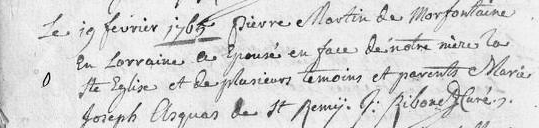 Le 19 février 1765 pierre Martin de Morfontaine
En Lorraine a Epousé en face de nôtre mère la
o Ste Eglise et de plusieurs temoins et parents Marie
Joseph Asquas de St Remÿ. J: Ribone Curé.